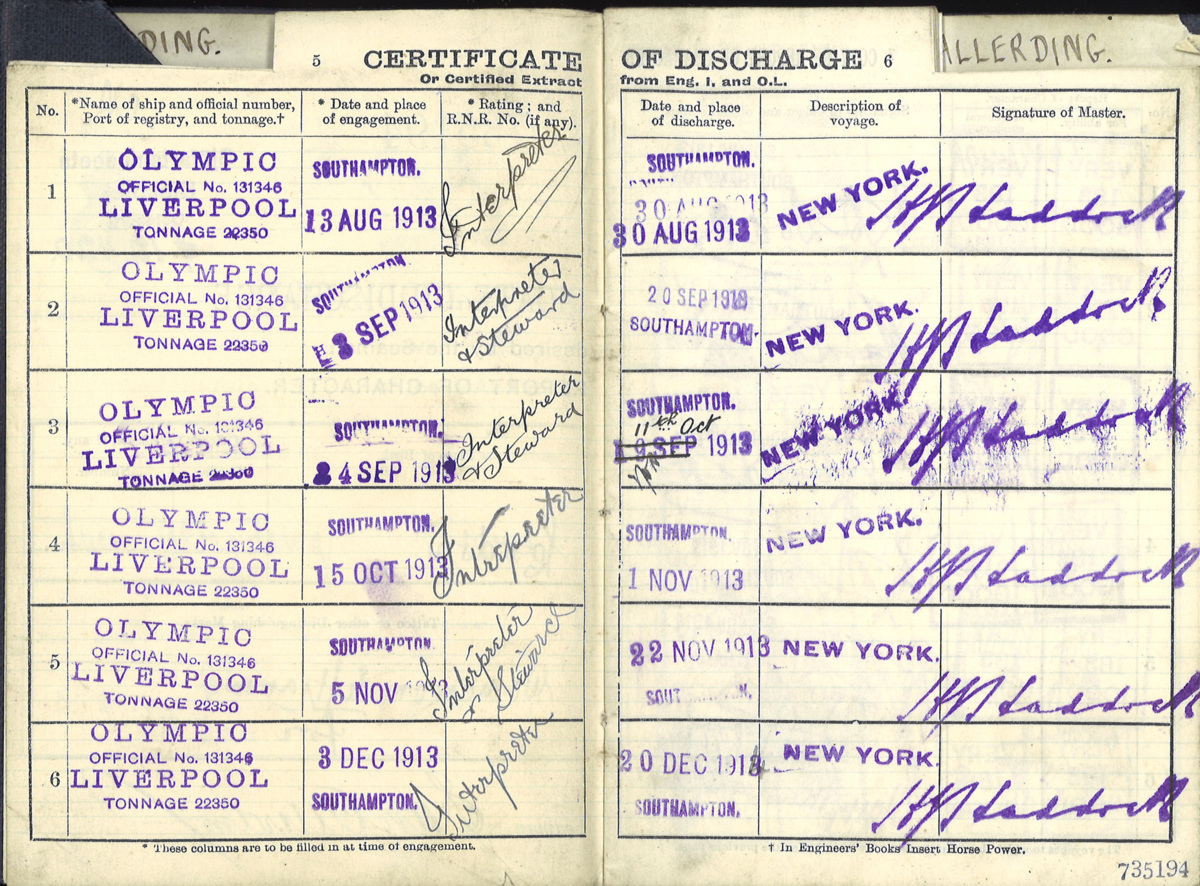 DING.
5 CERTIFICATE
Or Certified Extract
No.
*Name of ship and official number,
Port of registry, and tonnage.†
* Date and place
of engagement.
* Rating; and
R.N.R. No. (if any).
1
OLYMPIC
OFFICIAL No. 131346
LIVERPOOL
TONNAGE 22350
SOUTHAMPTON.
13 AUG 1913
Interpreter
2
OLYMPIC
OFFICIAL No. 131346
LIVERPOOL
TONNAGE 22350
SOUTHAMPTON.
3 SEP 1913
Interpreter
& Steward
3
OLYMPIC
OFFICIAL No. 131346
LIVERPOOL
TONNAGE 22350
SOUTHAMPTON.
24 SEP 1913
Interpreter
& Steward
4
OLYMPIC
OFFICIAL No. 131346
LIVERPOOL
TONNAGE 22350
SOUTHAMPTON.
15 OCT 1913
Interpreter
5
OLYMPIC
OFFICIAL No. 131346
LIVERPOOL
TONNAGE 22350
SOUTHAMPTON.
5 NOV 1913
Interpreter
& Steward
6
OLYMPIC
OFFICIAL No. 131346
LIVERPOOL
TONNAGE 22350
3 DEC 1913
SOUTHAMPTON.
Interpreter
* These columns are to be filled in at time of engagement.
ALLERDING.
OF DISCHARGE 6
from Eng. 1, and O.L.
Date and place
of discharge.
Description of
voyage.
Signature of Master.
SOUTHAMPTON.
30 AUG 1913
30 AUG 1913
NEW YORK.
HJ Haddock
20 SEP 1913
SOUTHAMPTON.
NEW YORK.
HJ Haddock
SOUTHAMPTON.
11th Oct
19 SEP 1913
NEW YORK.
HJ Haddock
SOUTHAMPTON.
1 NOV 1913
NEW YORK.
HJ Haddock
22 NOV 1913
SOUTHAMPTON.
NEW YORK.
HJ Haddock
20 DEC 1913
SOUTHAMPTON.
NEW YORK.
HJ Haddock
† In Engineers' Books Insert Horse Power.
735194